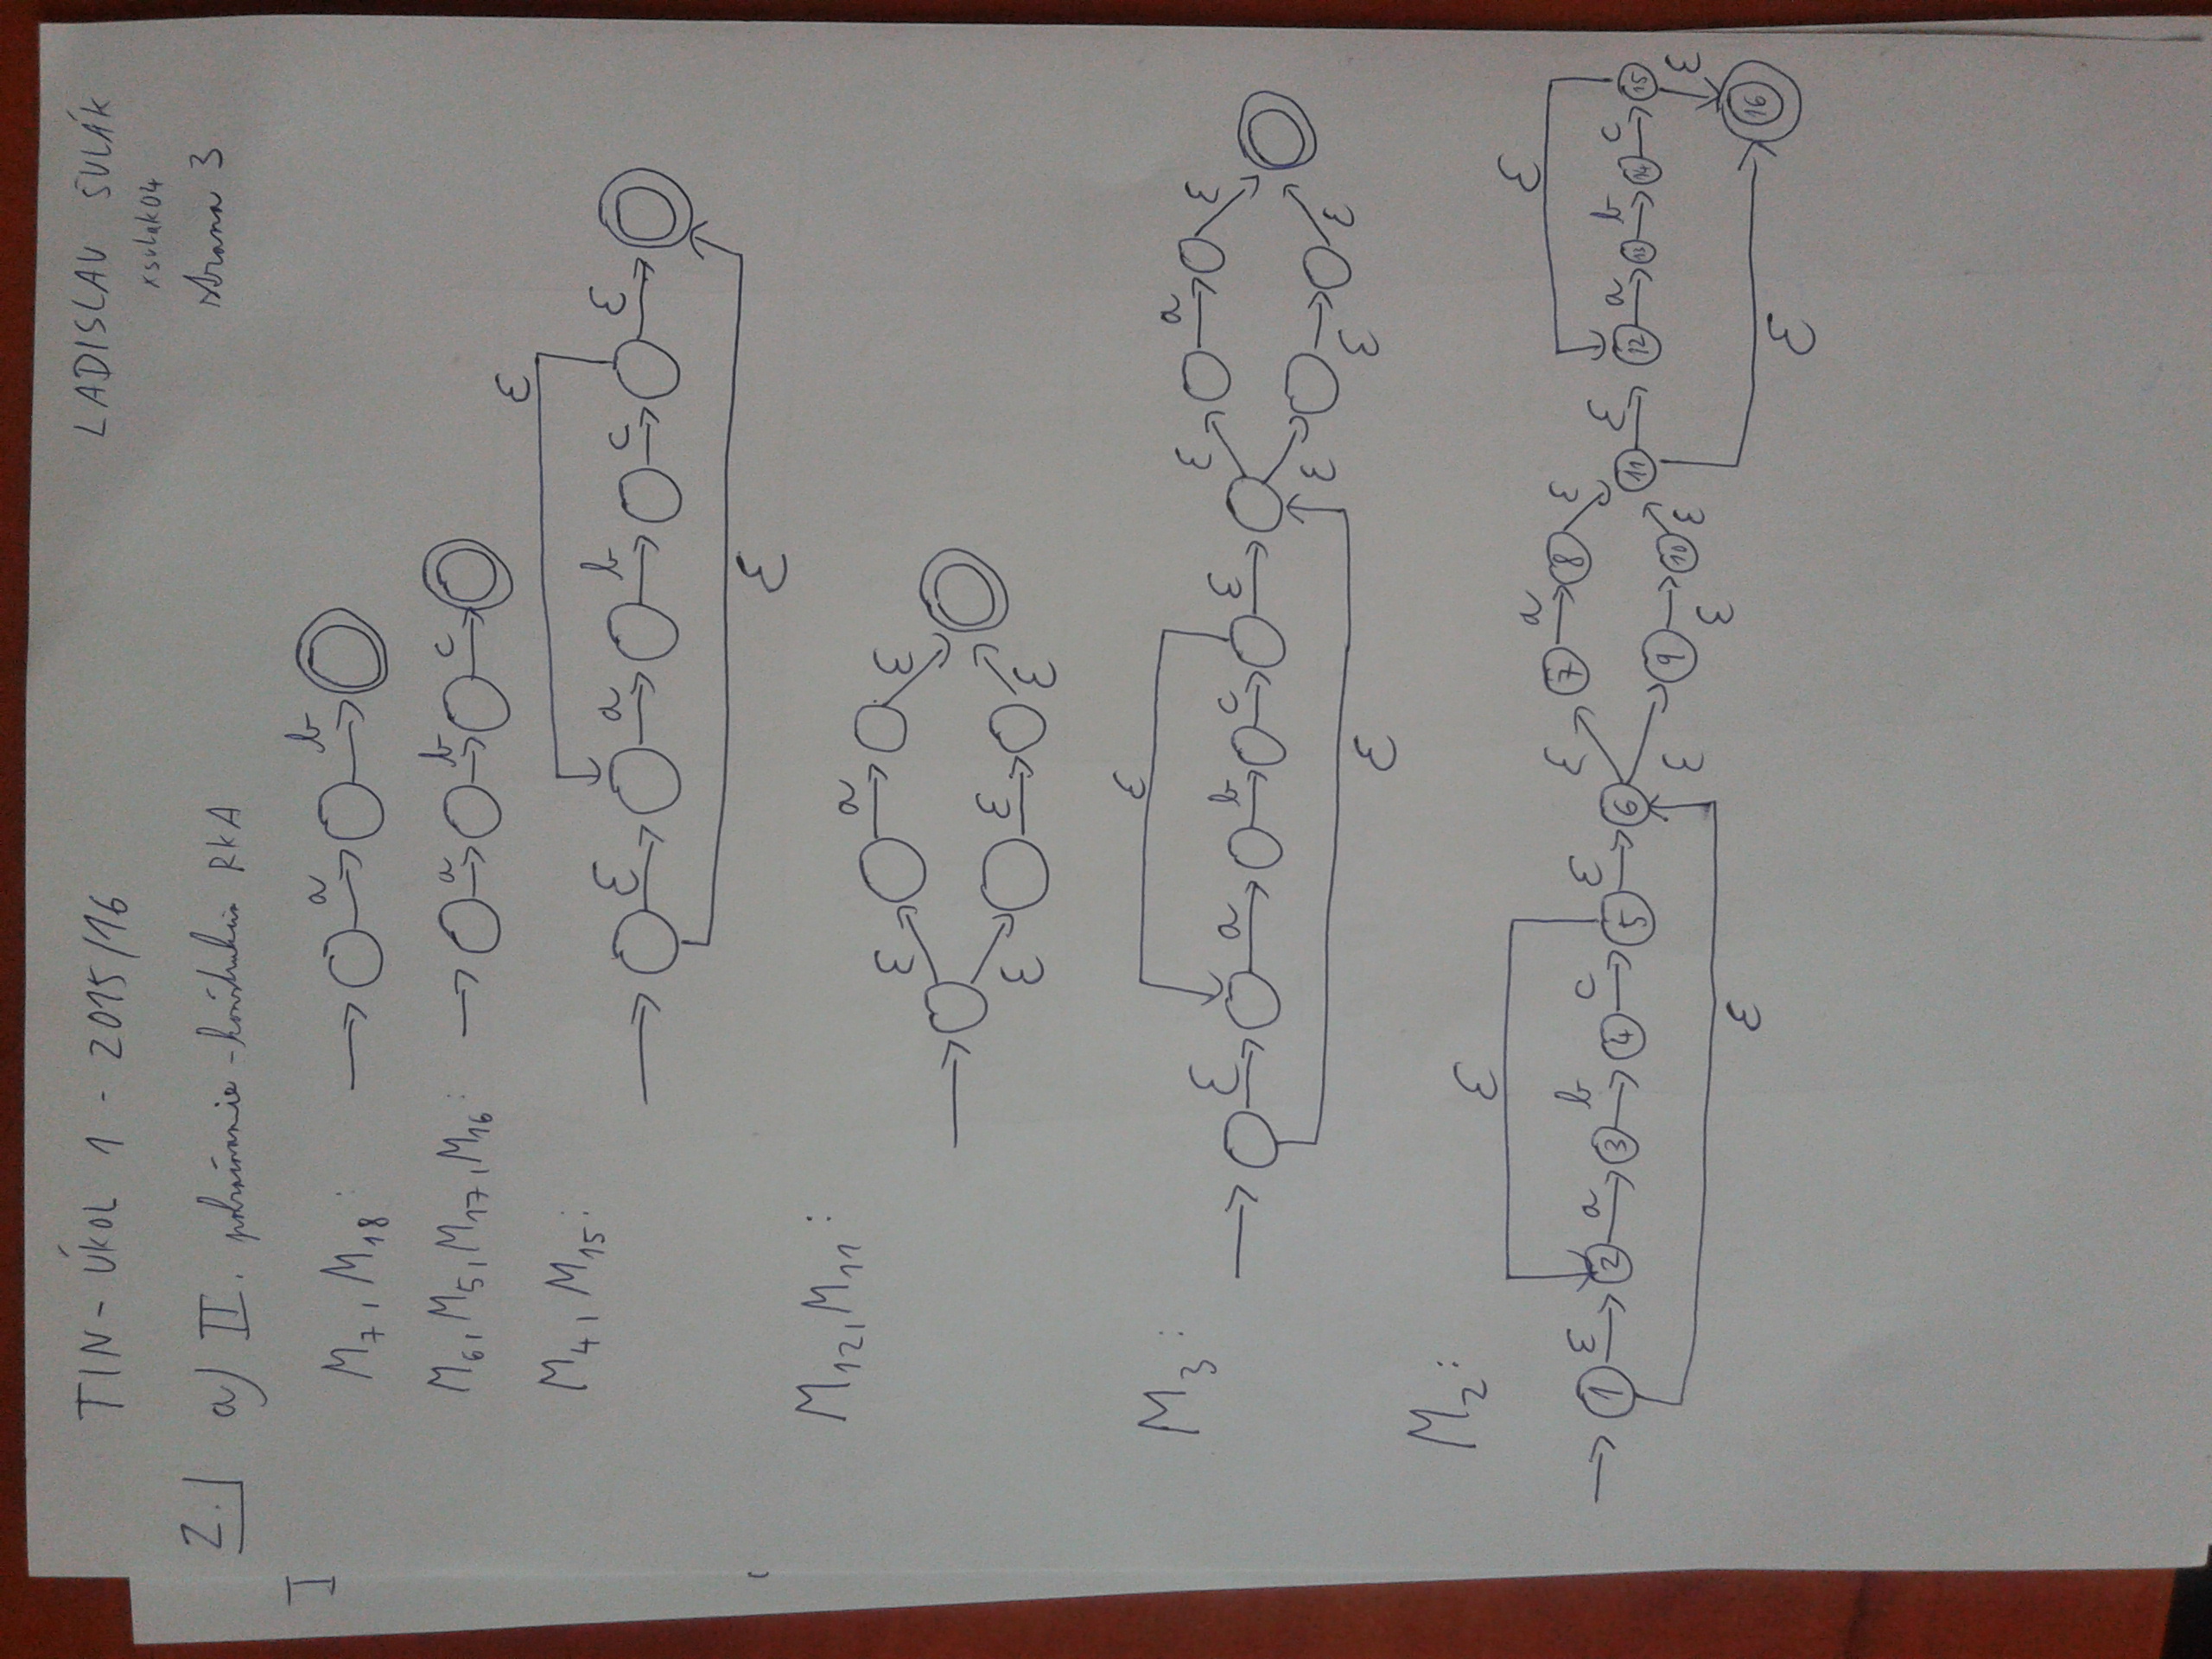 TIN - ÚKOL 1 - 2015/16
LADISLAV SULÁK
xsulak04
strana 3
2.) a) II. pokračovanie - konštrukcia RKA
I
M7, M18:
a b
M6, M5, M17, M16:
a b c
M4, M15:
ε
ε a b c ε
ε
M12, M11:
a
ε ε
ε ε ε
M3:
ε
ε a b c ε ε a ε
ε ε ε
ε
M2:
ε ε
1 ε 2 a 3 b 4 c 5 ε 6 ε 7 a 8 ε 11 ε 12 a 13 b 14 c 15 ε
ε 9 ε 10 ε
16
ε ε